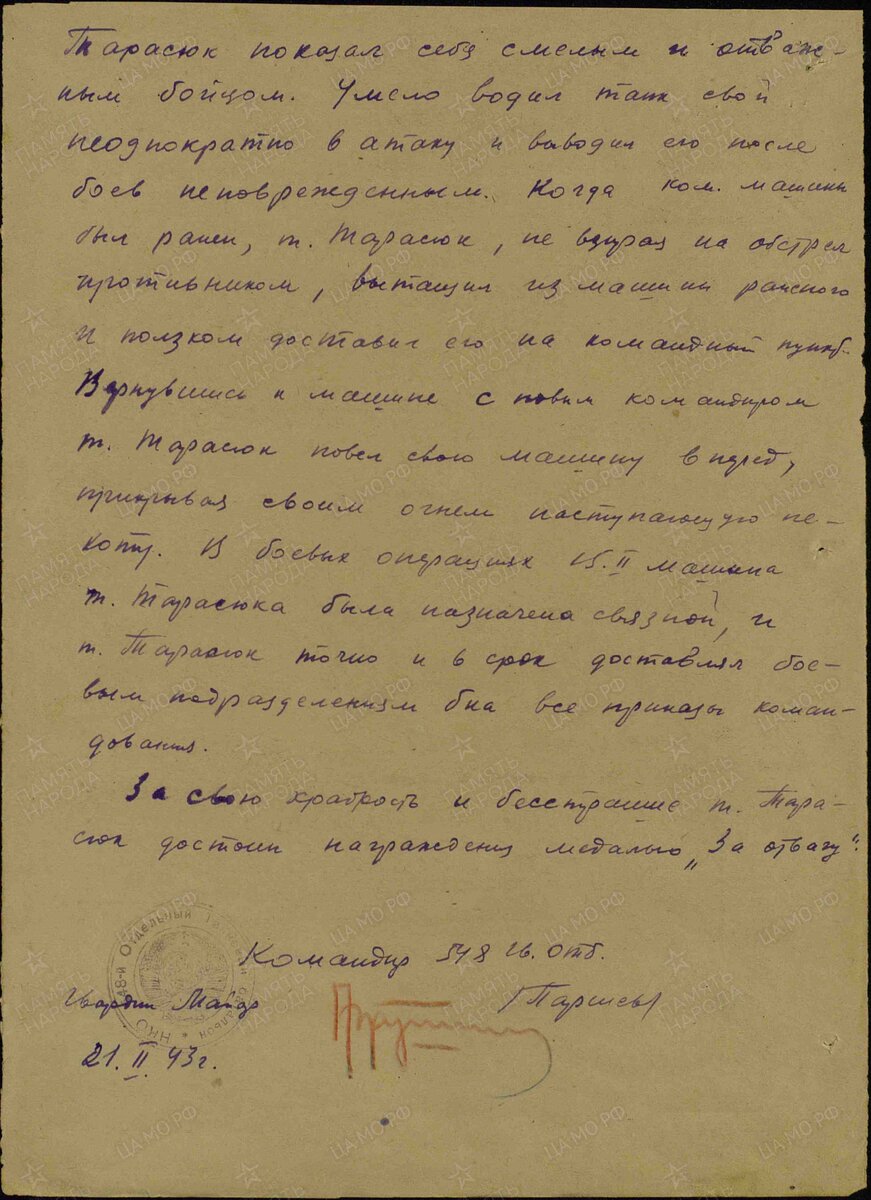 Тарасюк показал себя смелым и отваж-
ным бойцом. Умело водил танк свой
неоднократно в атаку и выводил его после
боев неповрежденным. Когда ком. машины
был ранен, т. Тарасюк, не взирая на обстрел
противником, вытащил из машины раненого
и ползком доставил его на командный пункт.
Вернувшись к машине с новым командиром
т. Тарасюк повел свою машину вперед,
прикрывая своим огнем наступающую пе-
хоту. В боевых операциях 15.II машина
т. Тарасюка была назначена связной, и
т. Тарасюк точно и в срок доставлял бое-
вым подразделениям б-на все приказы коман-
дования.
За свою храбрость и бесстрашие т. Тара-
сюк достоин награждения медалью „За отвагу".
Командир 548 Отб.
Гвардии Майор
21.II.43г.
ПАМЯТЬ НАРОДА
ЦА МО РФ